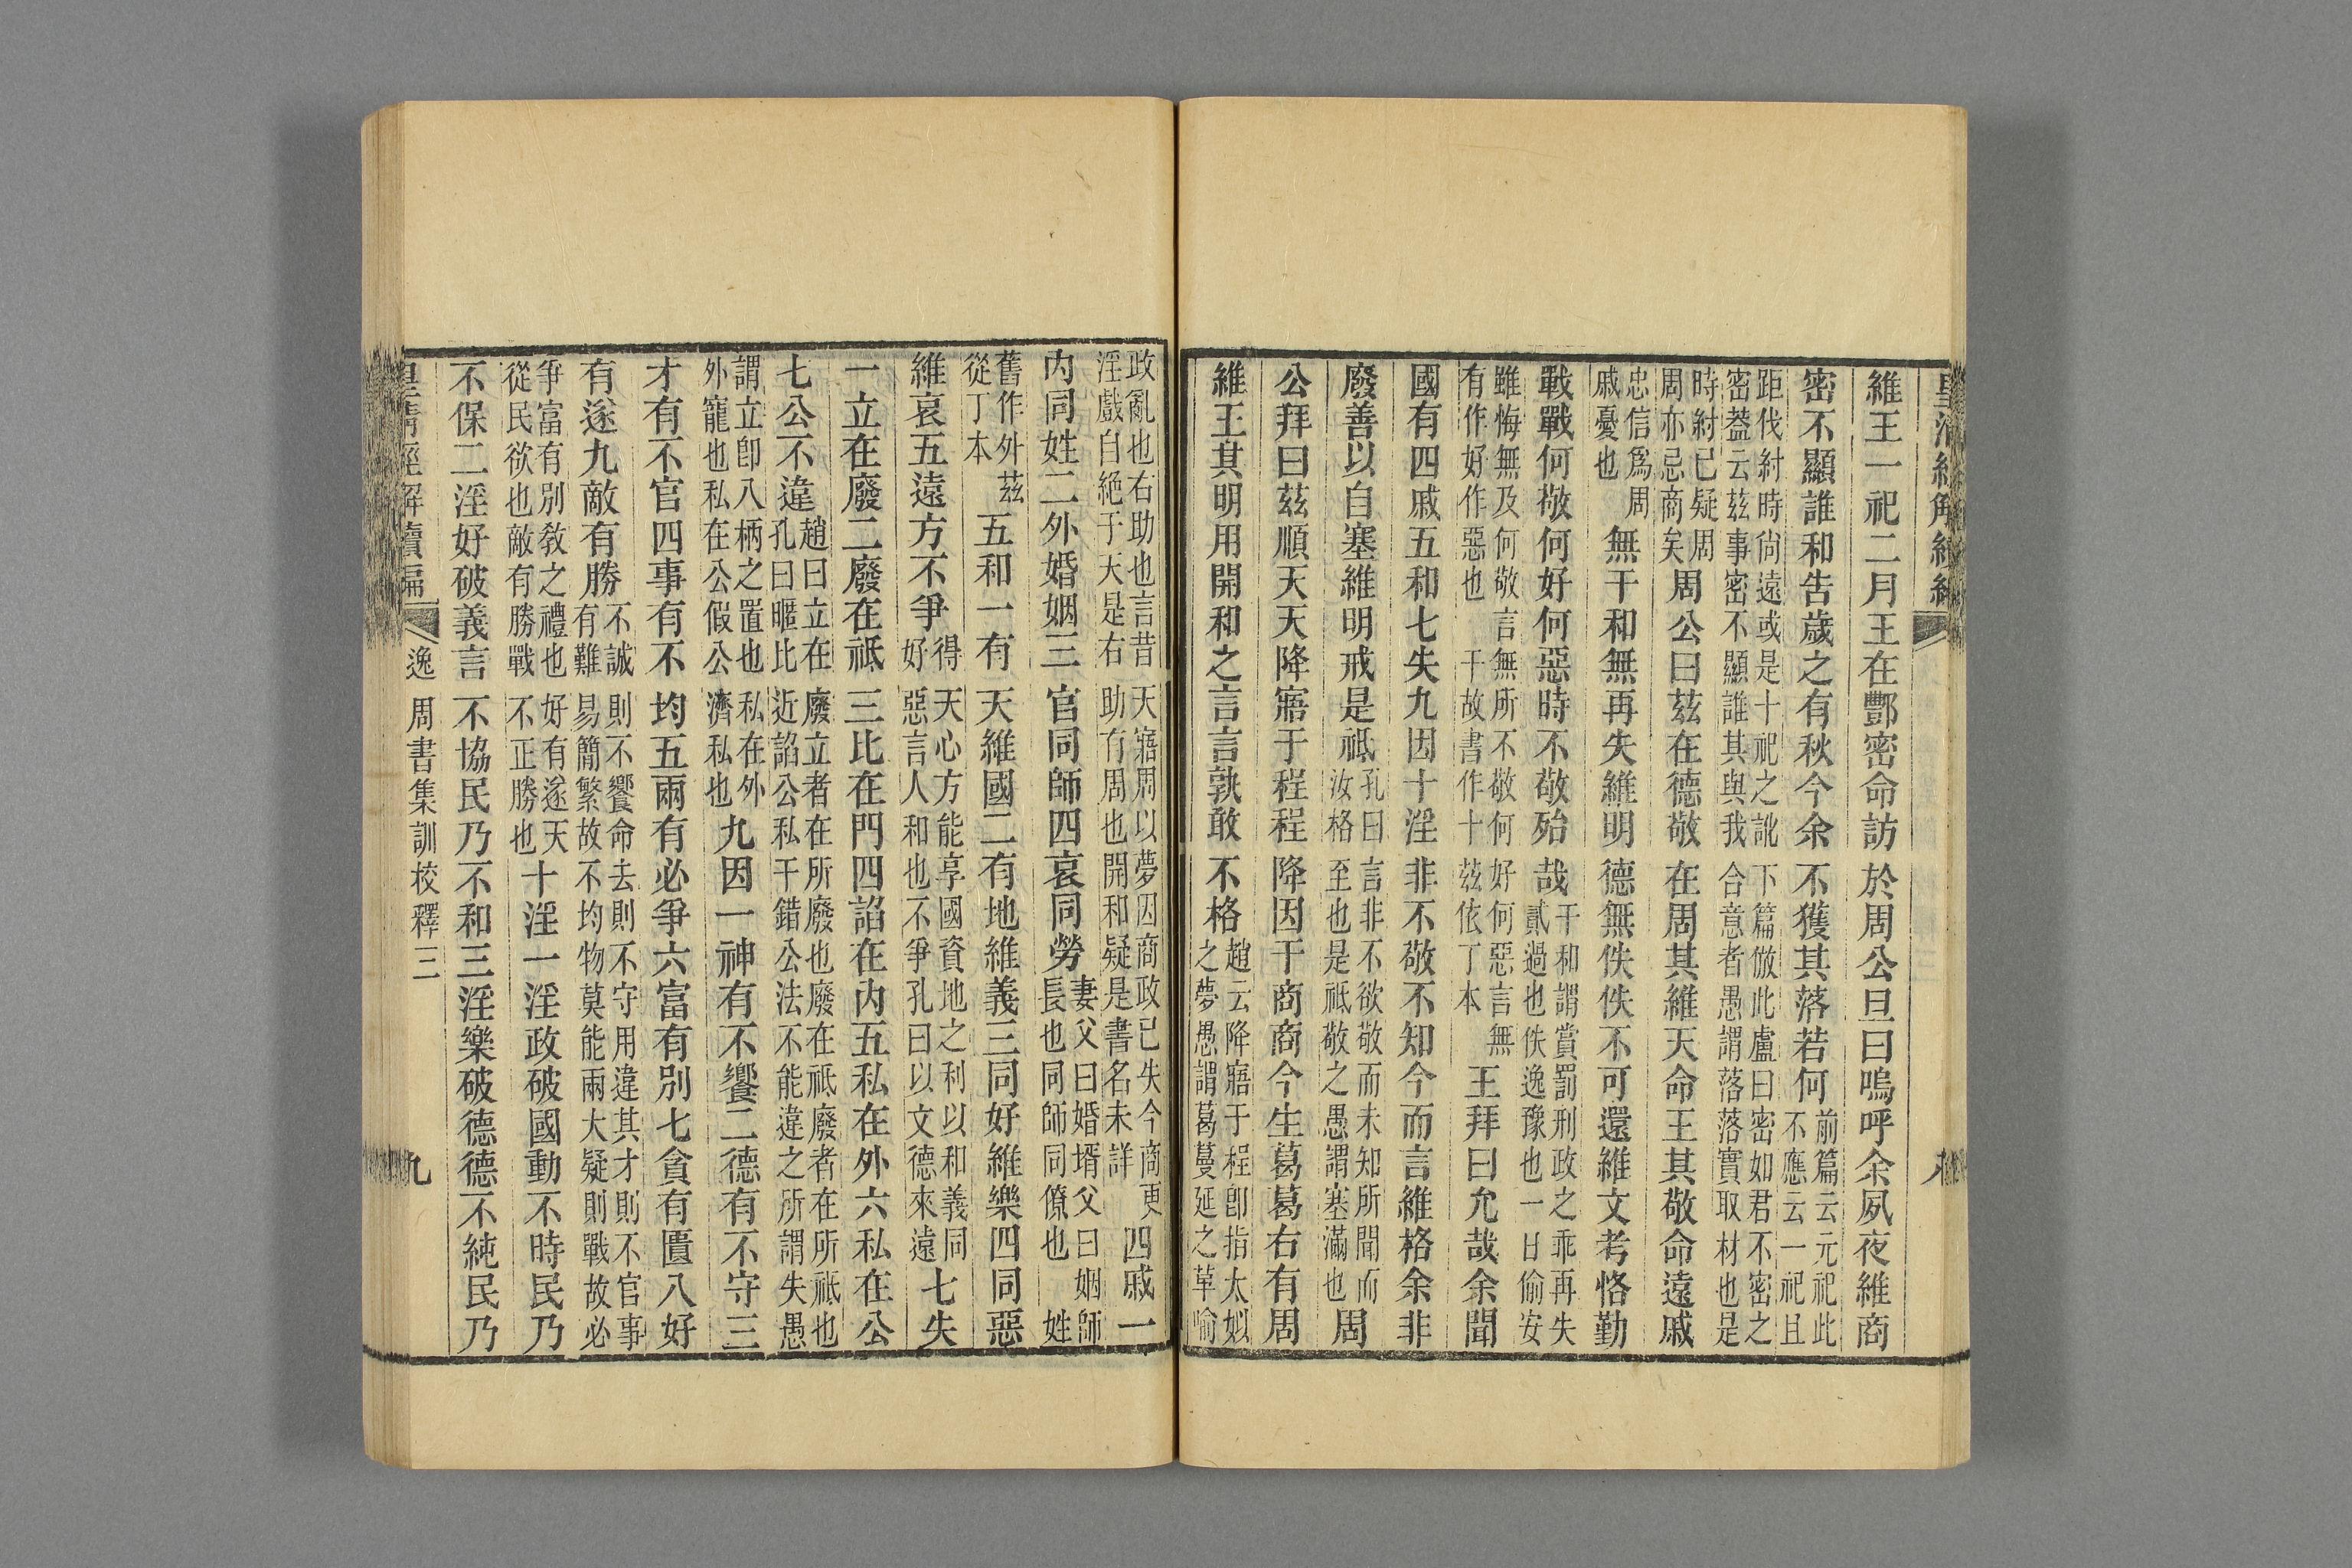 維王一祀二月王在酆密命訪於周公旦曰嗚呼余夙夜維商
密不顯誰和告歲之有秋今余不獲其落若何前篇云元祀此不應云一祀且
距伐紂時尙遠或是十祀之訛下篇倣此盧曰密如君不密之密葢云茲事密不顯誰其與我合意者愚謂落落實取材也是
時紂已疑周周亦忌商矣周公曰茲在德敬在周其維天命王其敬命遠戚
忠信爲周戚憂也無干和無再失維明德無佚佚不可還維文考恪勤
戰戰何敬何好何惡時不敬殆哉干和謂賞罰刑政之乖再失貳過也佚逸豫也一日偷安
雖悔無及何敬言無所不敬何好何惡言無有作好作惡也干故書作十茲依丁本王拜曰允哉余聞
國有四戚五和七失九因十淫非不敬不知今而言維格余非
廢善以自塞維明戒是祗孔曰言非不欲敬而未知所聞而汝格至也是祗敬之愚謂塞滿也周
公拜曰茲順天天降寤于程程降因于商商今生葛葛右有周
維王其明用開和之言言孰敢不格趙云降寤于程卽指太姒之夢愚謂葛蔓延之草喻
政亂也右助也言昔天寤周以夢因商政已失今商更淫戲自絕于天是右助有周也開和疑是書名未詳四戚一
內同姓二外婚姻三官同師四哀同勞妻父曰婚壻父曰姻師長也同師同僚也姓
舊作外茲從丁本五和一有天維國二有地維義三同好維樂四同惡
維哀五遠方不爭得天心方能享國資地之利以和義同好惡言人和也不爭孔曰以文德來遠七失
一立在廢二廢在祗三比在門四諂在內五私在外六私在公
七公不違趙曰立在廢立者在所廢也廢在祗廢者在所祗也孔曰暱比近諂公私干錯公法不能違之所謂失愚
謂立卽八柄之置也私在外外寵也私在公假公濟私也九因一神有不饗二德有不守三
才有不官四事有不均五兩有必爭六富有別七貪有匱八好
有遂九敵有勝不誠則不饗命去則不守用違其才則不官事有難易簡繁故不均物莫能兩大疑則戰故必
爭富有別敎之禮也好有遂天從民欲也敵有勝戰不正勝也十淫一淫政破國動不時民乃
不保二淫好破義言不協民乃不和三淫樂破德德不純民乃
皇淸經解續編
逸周書集訓校釋三
九